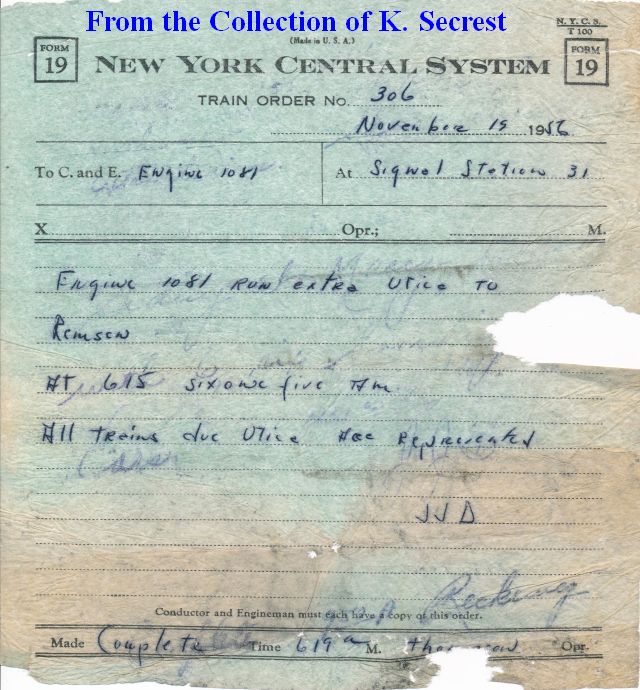 From the Collection of K. Secrest
N. Y. C. S.
T 100
(Made in U. S. A.)
FORM 19
NEW YORK CENTRAL SYSTEM
FORM 19
TRAIN ORDER NO. 306
November 19 1956
To C. and E. Engine 1081
At Signal Station 31
X Opr.; M.
Engine 1081 run extra Utica to
Remsen
At 615 six one five Am.
All trains due Utica Have
JJD
Conductor and Engineman must each have a copy of this order.
Made Complete Time 619 a M. Opr.